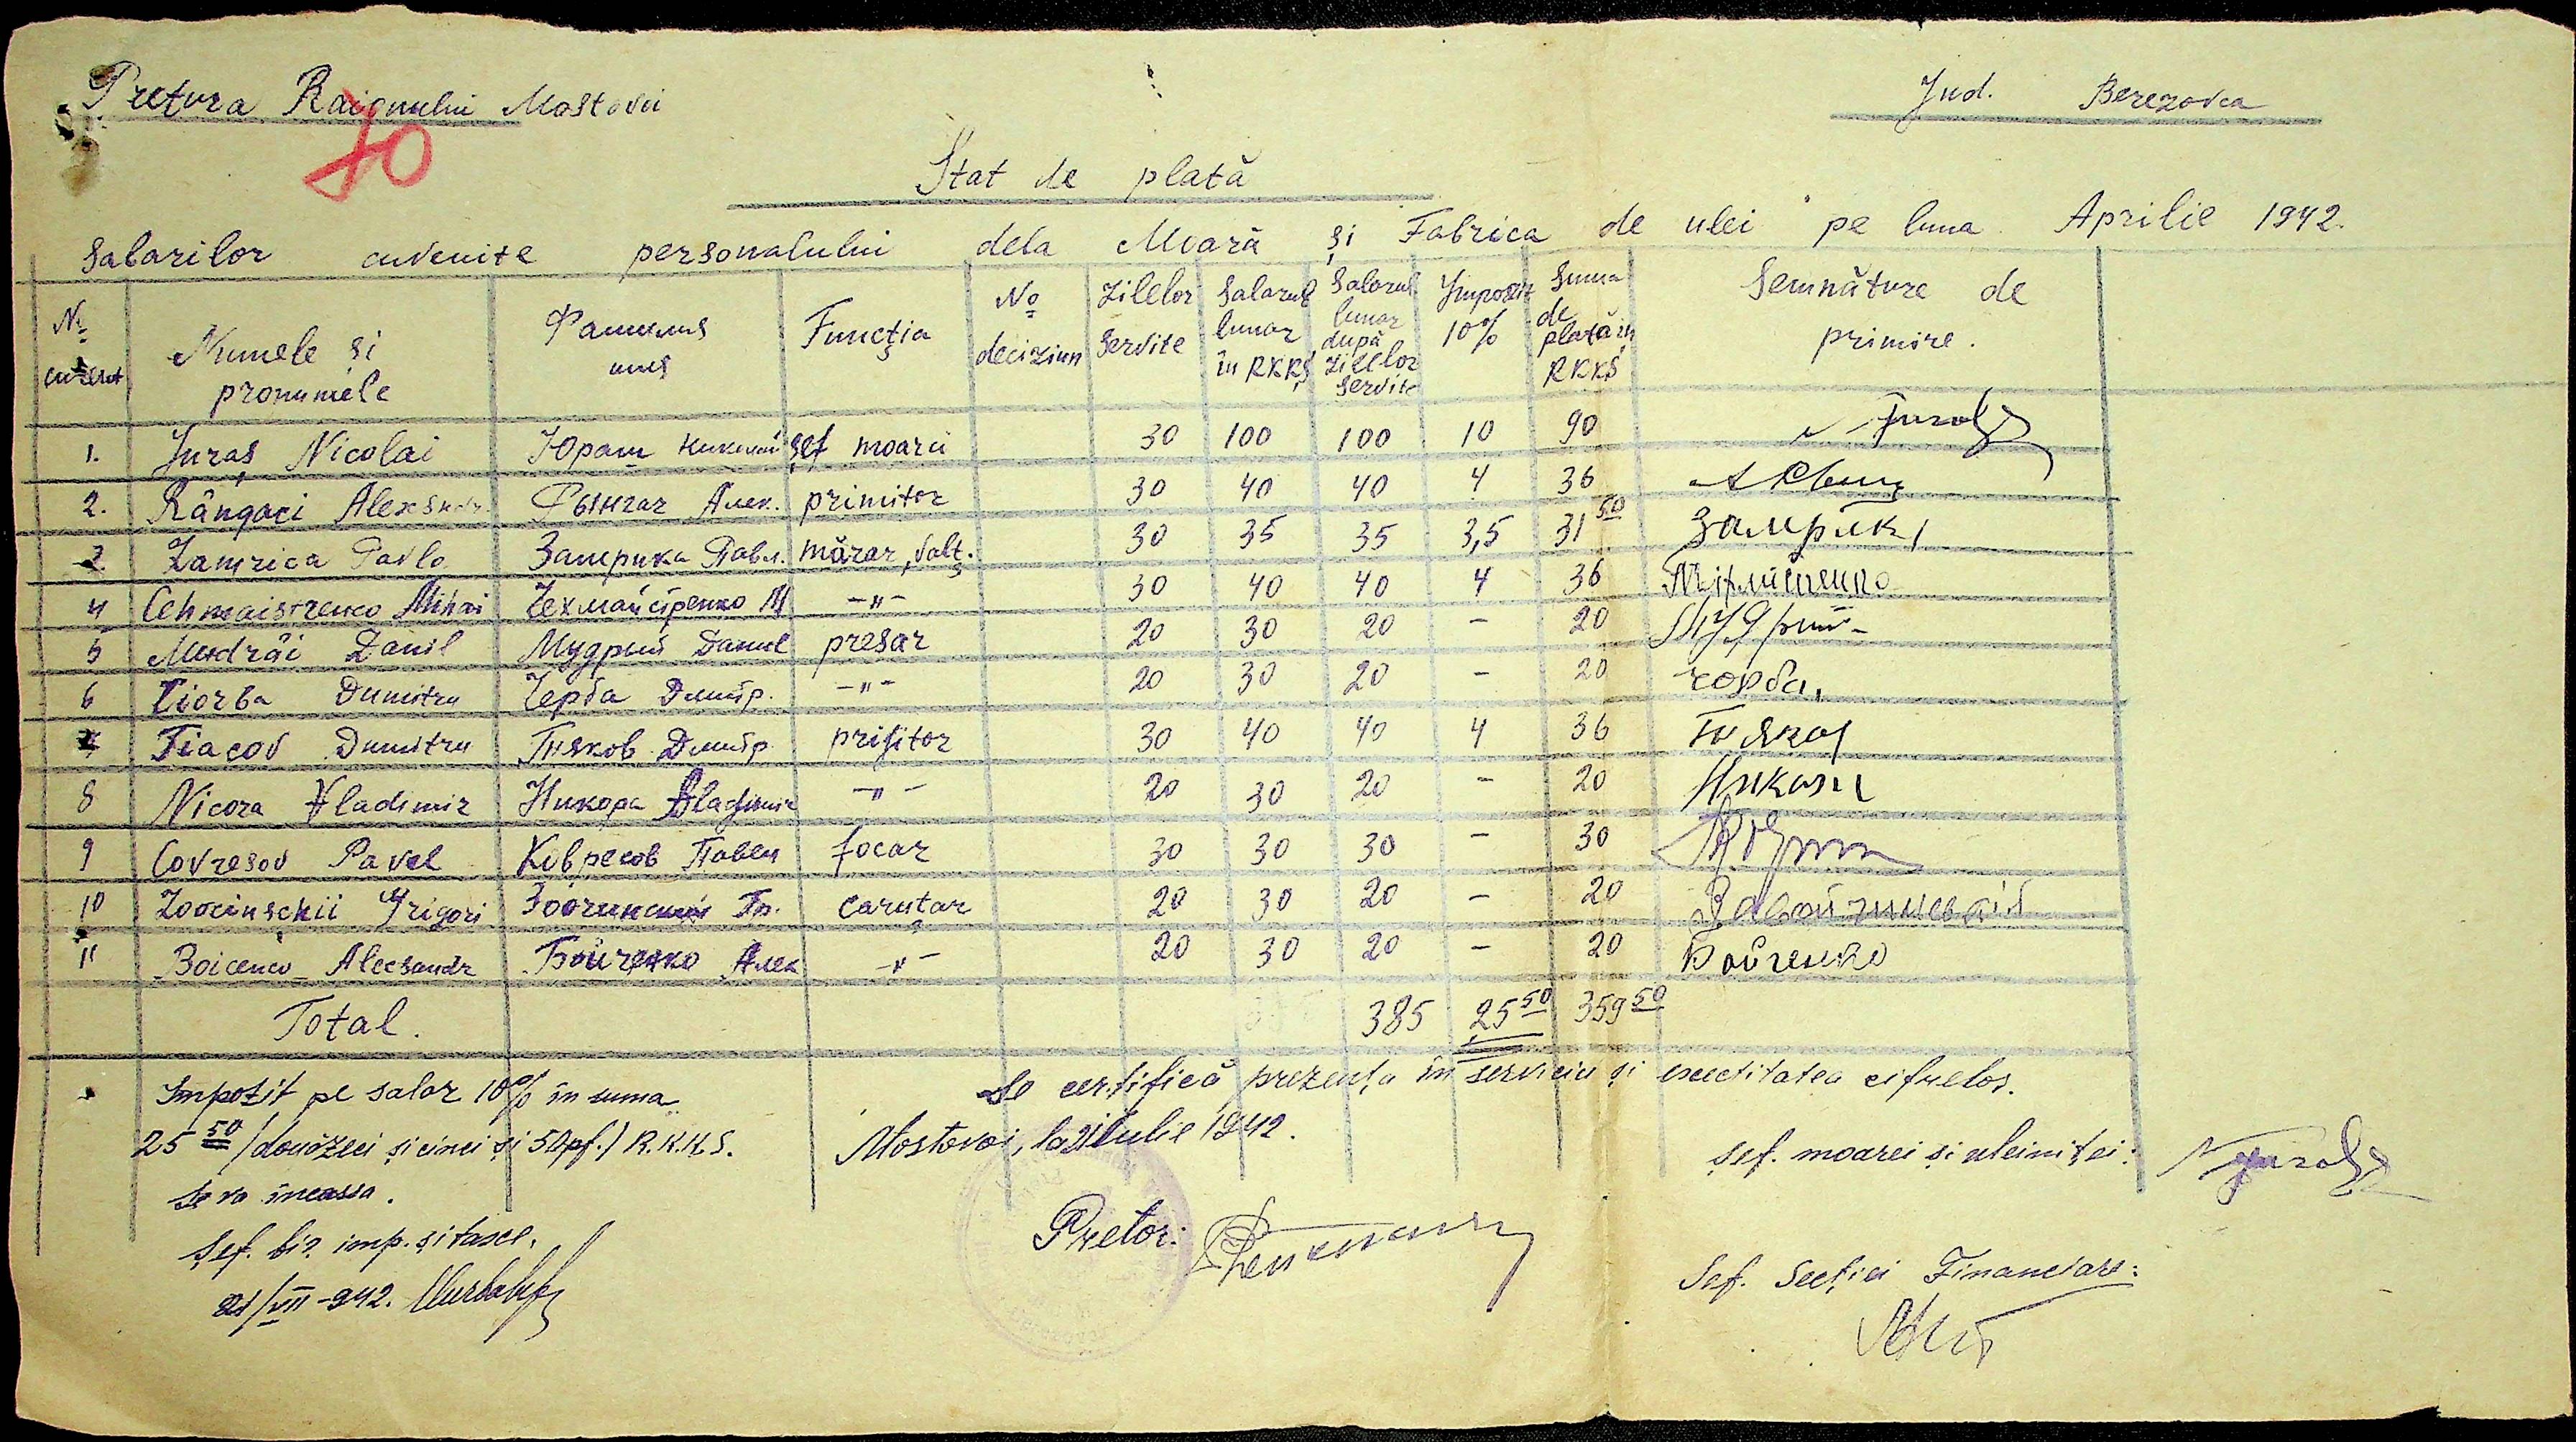 Pretura Raionului Mostovoi
Jud. Berezovca
70
Stat de plată
Salarilor cuvenite personalului dela Moară și Fabrica de ulei pe luna Aprilie 1942.
№ curent Numele și pronumele Фамилия имя Funcția № deciziun Zilelor servite Salarul lunar în RKKS Salarul lunar după zilelor servite Impozit 10% Suma de plată în RKKS Semnăture de primire.
1. Juraș Nicolai Юраш Николай șef moarii 30 100 100 10 90
2. Rângaci Alexandr. Рынгач Алек. primitor 30 40 40 4 36
3 Zamrica Pavlo Замрика Павл. mărar, valț. 30 35 35 3,5 31 50 Замрик
4 Cehmaistrenco Mihai Чехмайстренко М -"- 30 40 40 4 36
5 Mudrâi Danil Мудрый Данил presar 20 30 20 - 20 Мудрый
6 Ciorba Dumitru Чорба Димитр. -"- 20 30 20 - 20 чорба,
7 Tiacov Dumitru Тяков Димитр. prijitor 30 40 40 4 36 Тяков
8 Nicora Vladimir Никора Vladimir -"- 20 30 20 - 20 Никора
9 Covresov Pavel Ковресов Павел focar 30 30 30 - 30
10 Zoocinschii Grigori Зоочинский Гр. carutar 20 30 20 - 20
11 Boicenco Alecsandr Бойченко Алек -"- 20 30 20 - 20 Бойченко
Total. 385 25 50 359 50
Impozit pe salar 10% în suma
25 50 /douăzeci și cinci și 50 pf./ R.K.K.S.
se va încassa.
Șef. bir. imp. și taxe.
21/VII-942.
Se certifică prezența în serviciu și exactitatea cifrelor.
Mostovoi, la 21 Iulie 1942.
Pretor:
șef. moarei și uleiniței:
Șef. Secției Financiare: